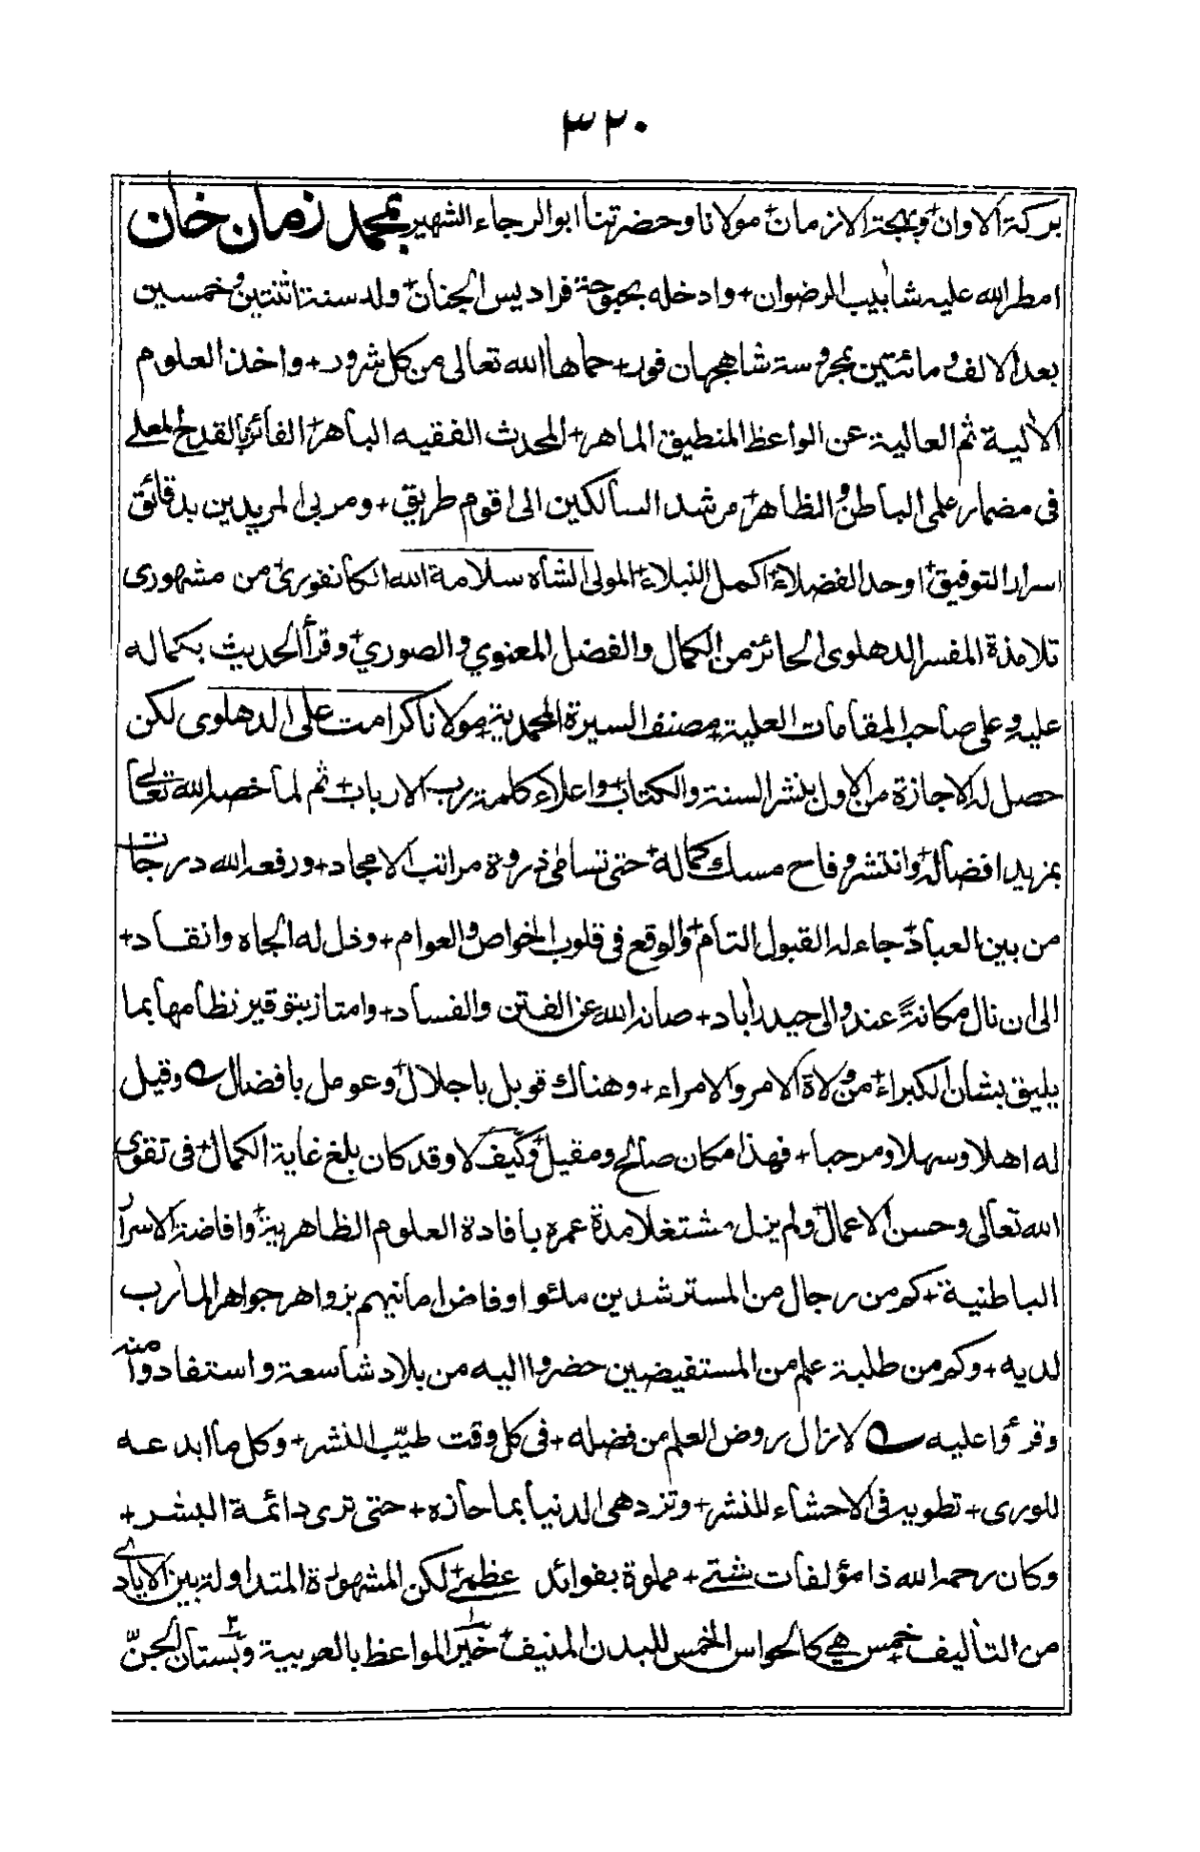 ٣٢٠
بركة الاوان+وبهجة الازمان+ مولانا وحضرتنا ابو الرجاء الشهير بمحمد زمان خان
امطر الله عليه شابيب الرضوان+وادخله بحبوحة فراديس الجنان+ ولد سنة اثنتين وخمسين
بعد الالف ومائتين بمحروسة شاهجهان فور+حماها الله تعالى من كل شرور+واخذ العلوم
الألية ثم العالية عن الواعظ المنطيق الماهر+المحدث الفقيه الباهر+الفائز بالقدح المعلے
فى مضمار علمى الباطن والظاهر+مرشد السالكين الى اقوم طريق+ومربى المريدين بدقائق
اسرار التوفيق+اوحد الفضلاء+اكمل النبلاء+المولى الشاه سلامة الله الكانفورى+من مشهورى
تلامذة المفسر الدهلوى الحائز من الكمال والفضل المعنوي والصوري+وقرأ الحديث بكماله
عليه وعلى صاحب المقامات العلية+مصنف السيرة المحمدية+مولانا كرامت على الدهلوى لكن
حصل له الاجازة من الاول بنشر السنة والكتاب+واعلاء كلمة رب الارباب+ثم لما خصه الله تعالى
بمزيد افضاله+وانتشر وفاح مسك كماله+حتى تسامى ذروة مراتب الامجاد+ورفعه الله درجات
من بين العباد+جاء له القبول التام+والوقع فى قلوب الخواص والعوام+وذل له الجاه وانقاد+
الى ان نال مكانة عند والى حيدراباد+صانه الله عن الفتن والفساد+وامتاز بتوقير نظامها بما
يليق بشان الكبراء+من ولاة الامر والامراء+وهناك قوبل باجلال+وعومل بافضال ے وقيل
له اهلا وسهلا ومرحبا+فهذا مكان صالح ومقيل+وكيف لا وقد كان بلغ غاية الكمال+فى تقوى
الله تعالى وحسن الاعمال+ولم يزل مشتغلا مدة عمره بافادة العلوم الظاهرية+وافاضة الاسرار
الباطنية+كم من رجال من المسترشدين ملئوا وفاض امانيهم بزواهر جواهر المأرب
لديه+وكم من طلبة علم من المستفيضين حضروا اليه من بلاد شاسعة واستفادوا منه
وقرؤا عليه ے لازال روض العلم من فضله+فى كل وقت طيّب النشر+وكل ما ابدعه
للورى+تطويه فى الاحشاء للنشر+وتزدهى الدنيا بما حازه+حتى ترى دائمة البشر+
وكان رحمه الله ذا مؤلفات شتے+مملوة بفوائد عظمے+لكن المشهورة المتداولة بين الايادے
من التأليف خمس هے كالحواس الخمس للبدن المنيف+خير المواعظ بالعربية وبستان الجنّ